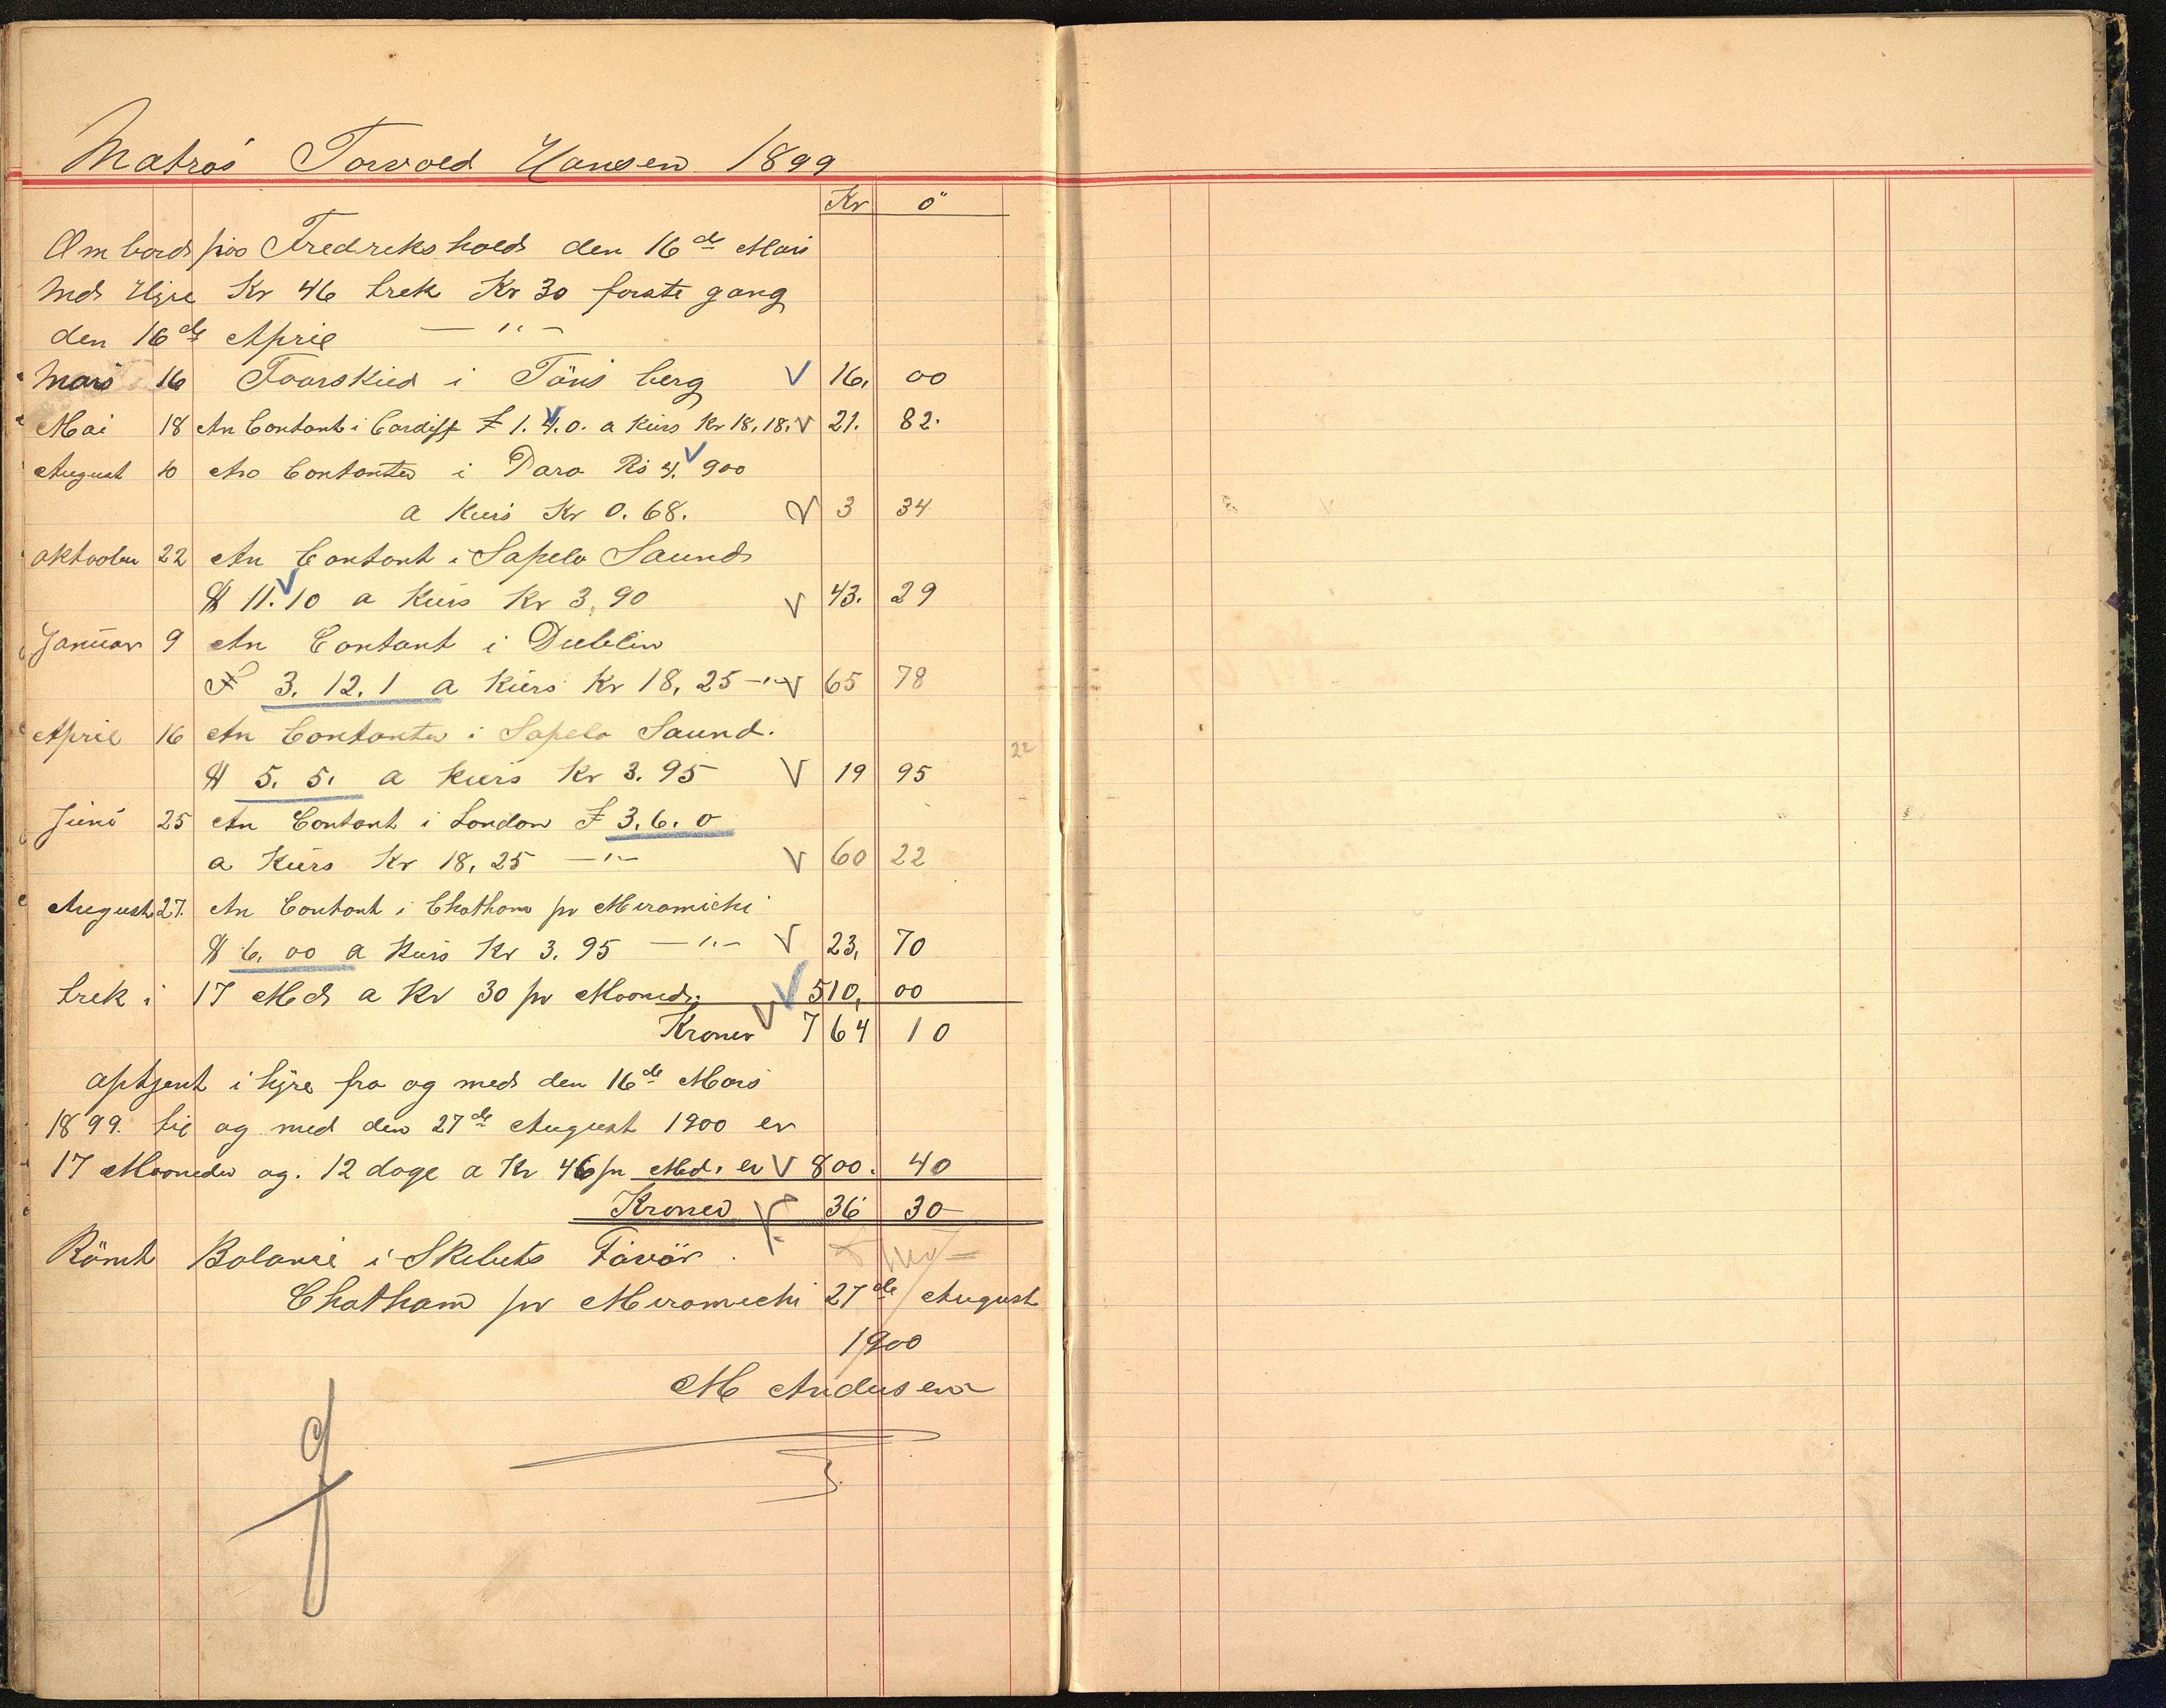 Matros Torvald Hansen 1899
Kr ö
Om bord paa Fredrekshald den 16de Mars
Med Hyre Kr 46 trek Kr 30 förste gang
den 16de April — " —
Mars 16 Foorskud i Töns berg 16. 00
Mai 18 An Contant i Cardiff £ 1. 4. 0. a Kurs Kr 18,18. 21. 82.
August 10 An Contanter i Para Rs 4. 900
a Kurs Kr 0. 68. 3 34
oktoober 22 An Contant i Sapelo Saund
$ 11. 10 a Kurs Kr 3,90 43. 29
Januar 9 An Contant i Dublin
£ 3. 12. 1 a Kurs Kr 18,25 — " — 65 78
April 16 An Contanter i Sapelo Saund.
$ 5. 5. a Kurs Kr 3. 95 19 95
22
Juni 25 An Contant i London £ 3. 6. 0
a Kurs Kr 18,25 — " — 60 22
August 27. An Contant i Chatham pr Meramichi
$ 6. 00 a Kurs Kr 3. 95 — " — 23, 70
trek i 17 Md a Kr 30 pr Mooned. 510, 00
Kroner 764 10
optjent i hyre fra og med den 16de Mars
1899. til og med den 27de August 1900 er
17 Mooneder og. 12 dage a Kr 46 pr Md. er 800. 40
Kroner 36 30
Römt Balance i Skibets Favör.
Chatham pr Meramichi 27de August
1900
M Andersen